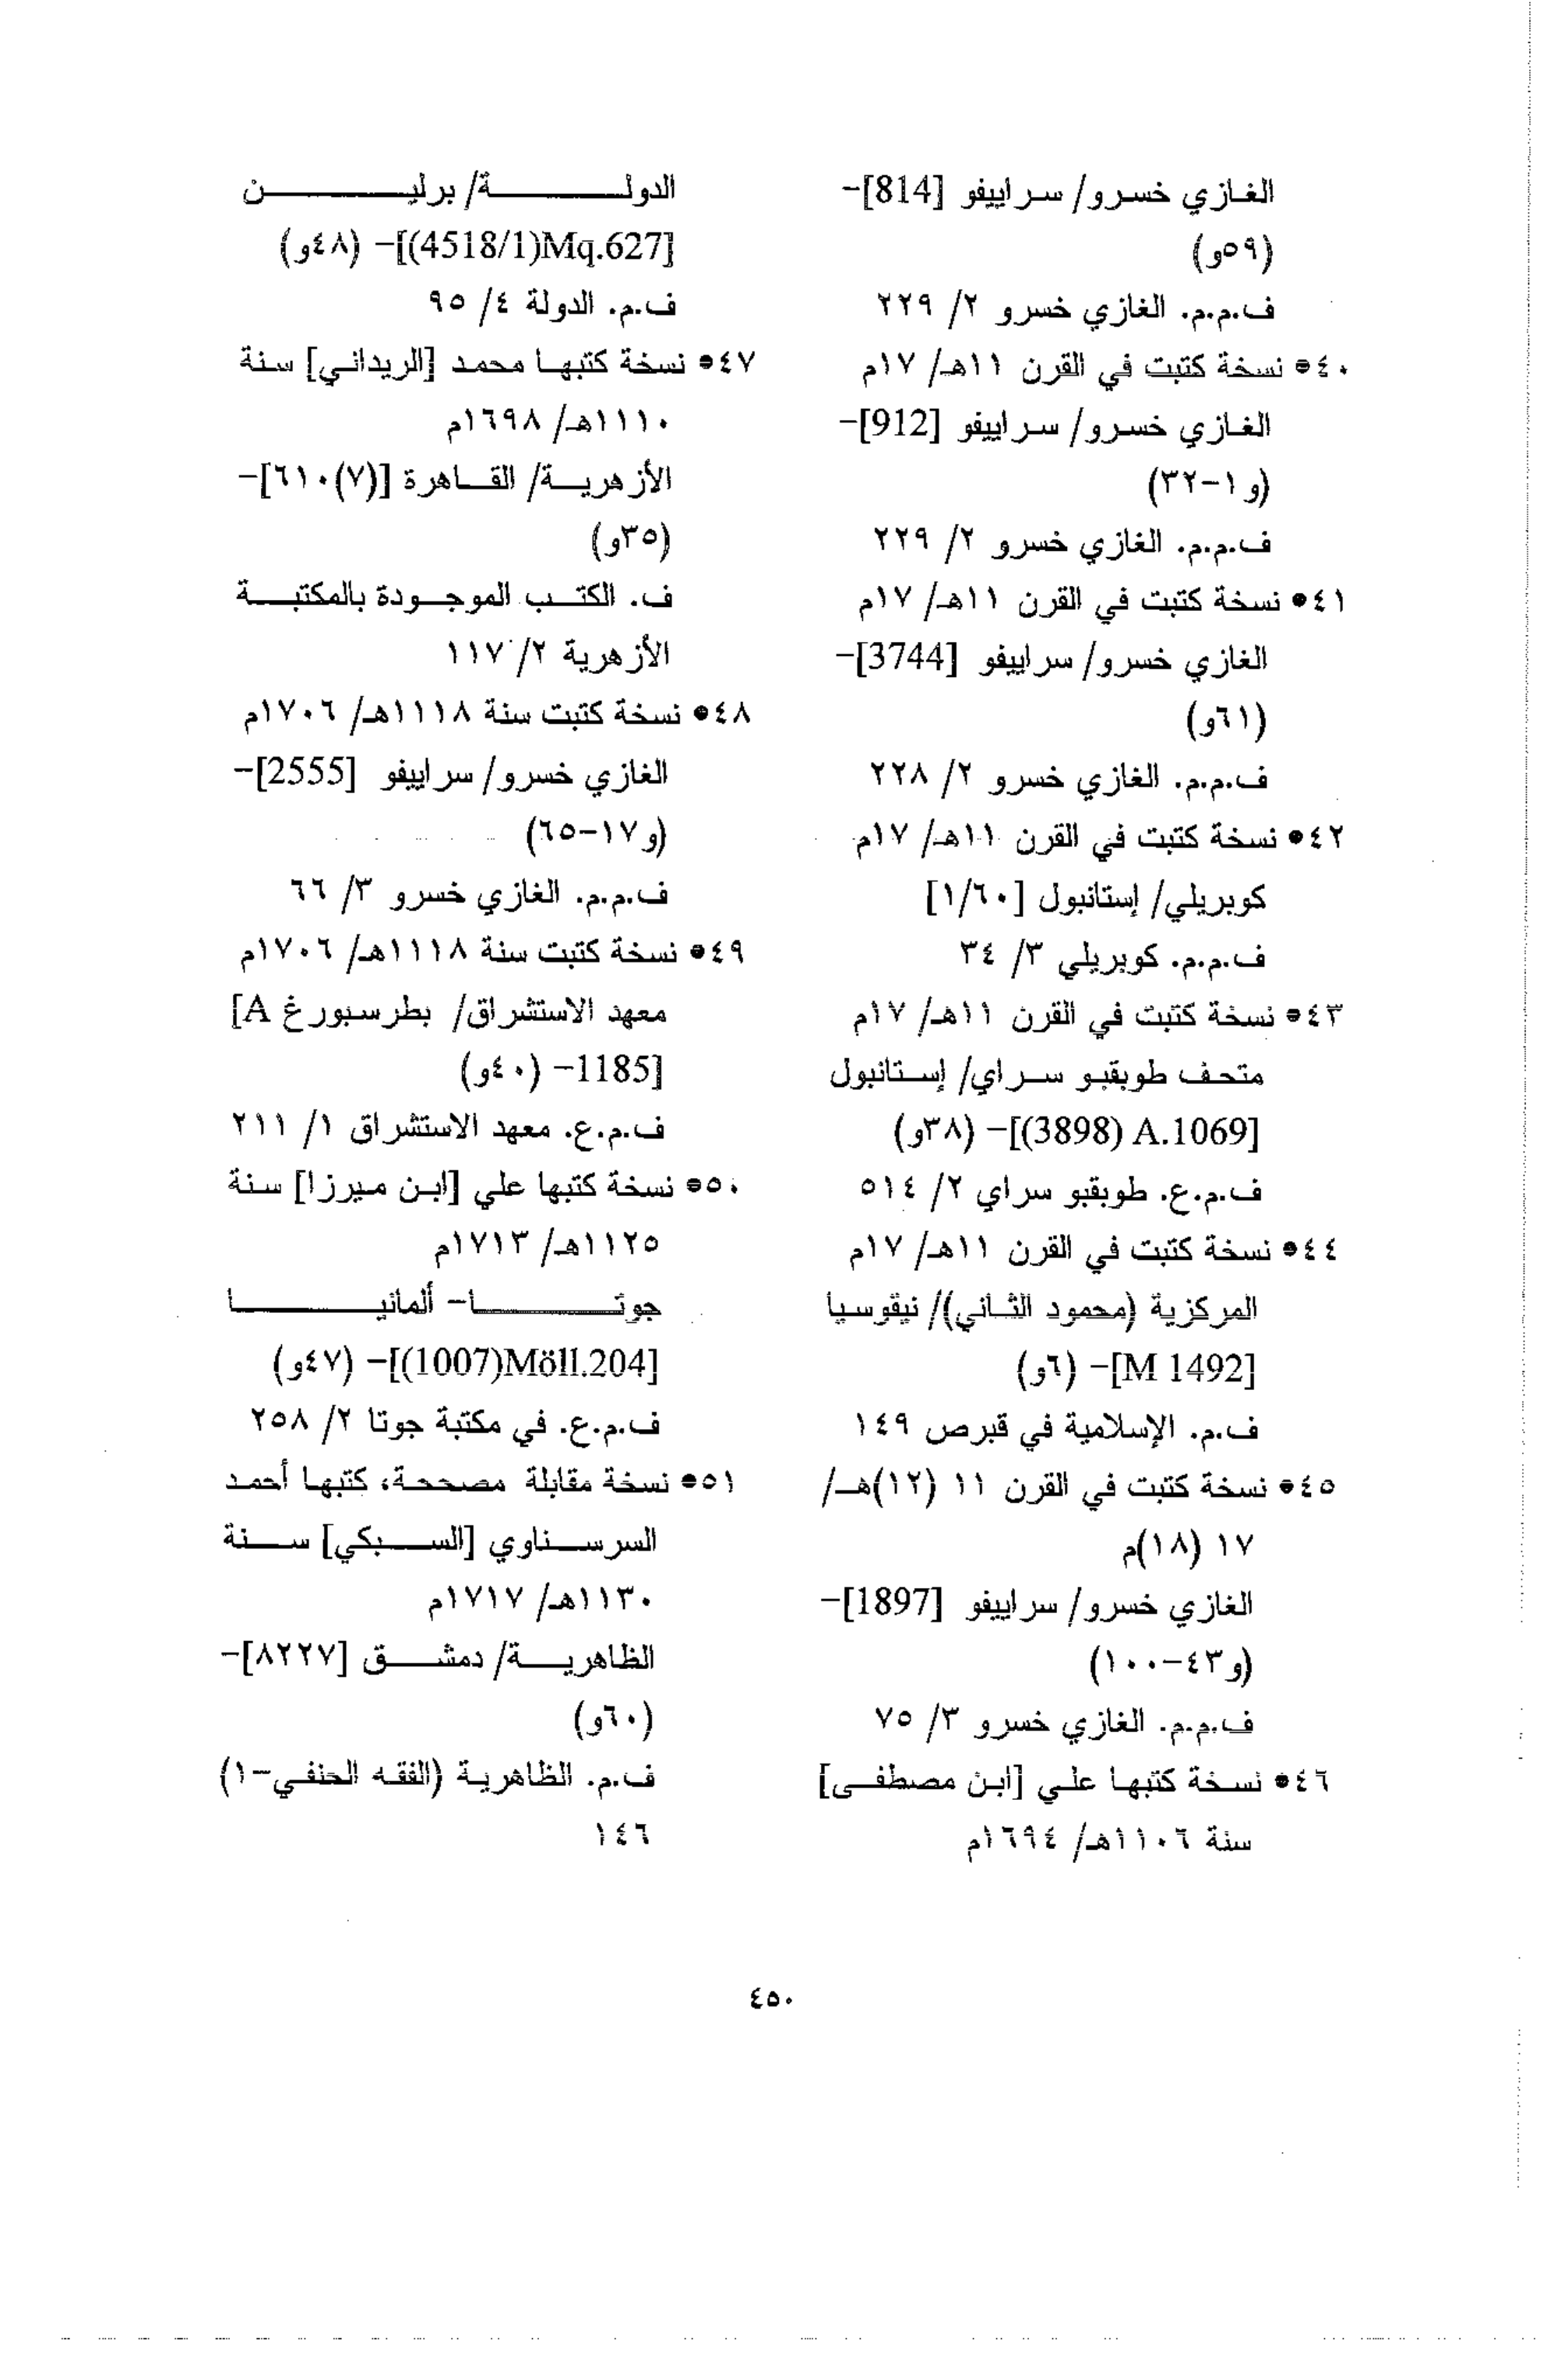 الغازي خسرو/ سراييفو [814]-
(٥٩و)
ف.م.م. الغازي خسرو ٢/ ٢٢٩
٤٠• نسخة كتبت في القرن ١١هـ/ ١٧م
الغازي خسرو/ سراييفو [912]-
(و١-٣٢)
ف.م.م. الغازي خسرو ٢/ ٢٢٩
٤١• نسخة كتبت في القرن ١١هـ/ ١٧م
الغازي خسرو/ سراييفو [3744]-
(٦١و)
ف.م.م. الغازي خسرو ٢/ ٢٢٨
٤٢• نسخة كتبت في القرن ١١هـ/ ١٧م
كوبريلي/ إستانبول [١/٦٠]
ف.م.م. كوبريلي ٣/ ٣٤
٤٣• نسخة كتبت في القرن ١١هـ/ ١٧م
متحف طوبقبو سراي/ إستانبول
[A.1069 (3898)]- (٣٨و)
ف.م.ع. طوبقبو سراي ٢/ ٥١٤
٤٤• نسخة كتبت في القرن ١١هـ/ ١٧م
المركزية (محمود الثاني)/ نيقوسيا
[M 1492]- (٦و)
ف.م. الإسلامية في قبرص ١٤٩
٤٥• نسخة كتبت في القرن ١١ (١٢)هـ/
١٧ (١٨)م
الغازي خسرو/ سراييفو [1897]-
(و٤٣-١٠٠)
ف.م.م. الغازي خسرو ٣/ ٧٥
٤٦• نسخة كتبها علي [ابن مصطفى]
سنة ١١٠٦هـ/ ١٦٩٤م
الدولة/ برلين
[Mq.627(4518/1)]- (٤٨و)
ف.م. الدولة ٤/ ٩٥
٤٧• نسخة كتبها محمد [الريداني] سنة
١١١٠هـ/ ١٦٩٨م
الأزهرية/ القاهرة [(٧)٦١٠]-
(٣٥و)
ف. الكتب الموجودة بالمكتبة
الأزهرية ٢/ ١١٧
٤٨• نسخة كتبت سنة ١١١٨هـ/ ١٧٠٦م
الغازي خسرو/ سراييفو [2555]-
(و١٧-٦٥)
ف.م.م. الغازي خسرو ٣/ ٦٦
٤٩• نسخة كتبت سنة ١١١٨هـ/ ١٧٠٦م
معهد الاستشراق/ بطرسبورغ [A
1185]- (٤٠و)
ف.م.ع. معهد الاستشراق ١/ ٢١١
٥٠• نسخة كتبها علي [ابن ميرزا] سنة
١١٢٥هـ/ ١٧١٣م
جوتا- ألمانيا
[Möll.204(1007)]- (٤٧و)
ف.م.ع. في مكتبة جوتا ٢/ ٢٥٨
٥١• نسخة مقابلة مصححة، كتبها أحمد
السرسناوي [السبكي] سنة
١١٣٠هـ/ ١٧١٧م
الظاهرية/ دمشق [٨٢٢٧]-
(٦٠و)
ف.م. الظاهرية (الفقه الحنفي-١)
١٤٦
٤٥٠